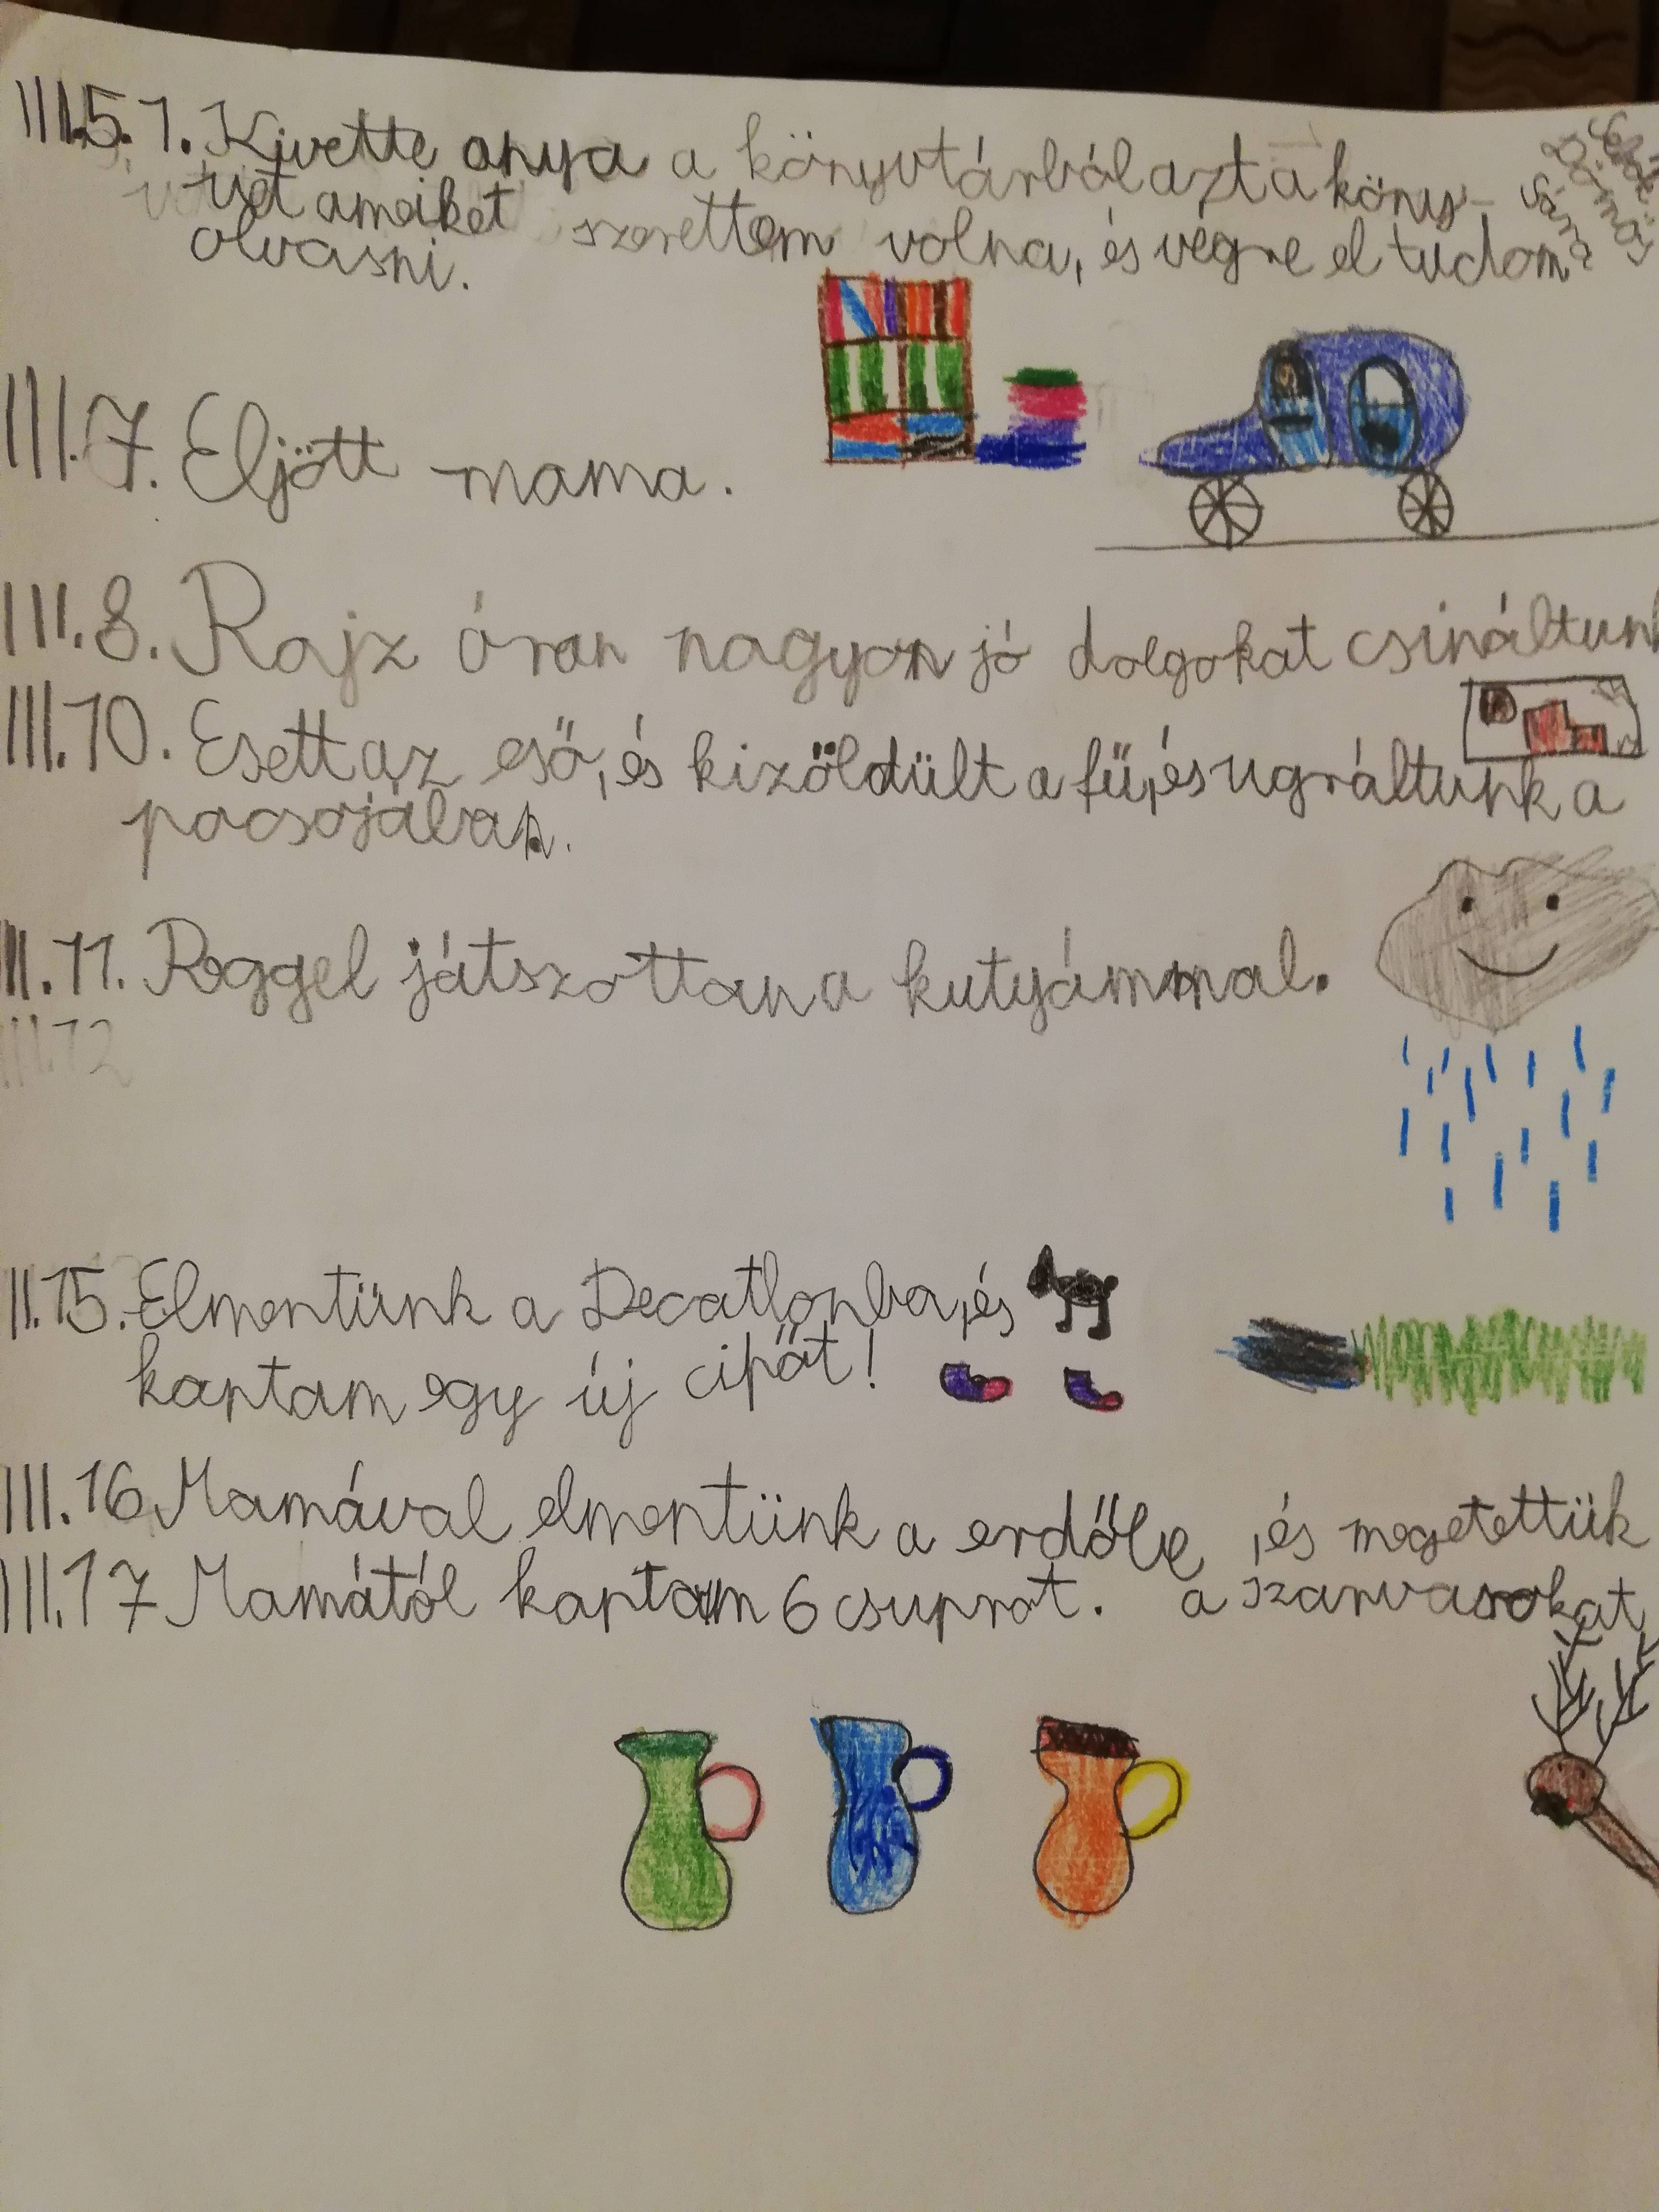 III.5. 1. Kivette anya a könyvtárból azt a köny-
vet ameiket szerettem volna, és végre el tudom
olvasni.
III.7. Eljött mama.
III.8. Rajz óran nagyon jó dolgokat csináltunk
III.10. Esett az eső, és kizöldült a fű, és ugráltunk a
pocsojában.
III.11. Reggel játszottan a kutyámmal.
III.12
II.15. Elmentünk a Decatlonba, és
kaptam egy új cipőt!
III.16 Mamával elmentünk a erdőle, és megetettük
a szarvasokat
III.17 Mamától kaptam 6 csuprot.